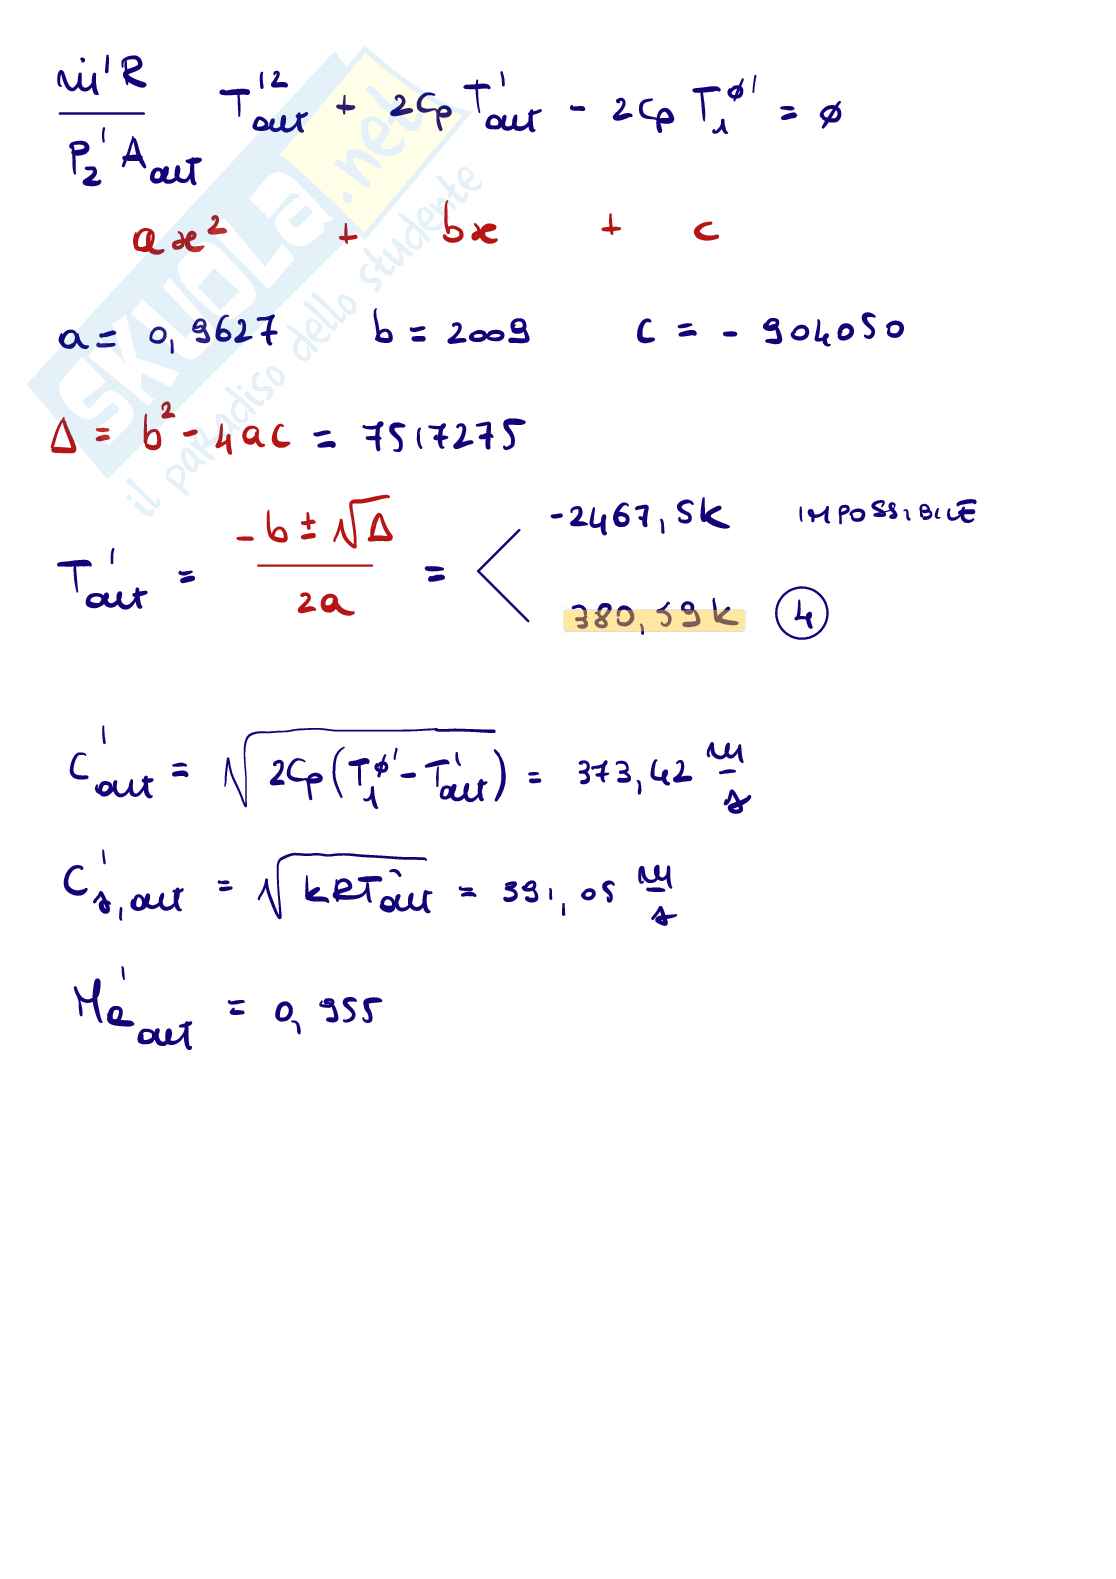 ṁ'R / P₂'A_out T'²_out + 2Cp T'_out - 2Cp T₁^ø' = ø
ax² + bx + c
a = 0,9627 b = 2009 c = - 904050
Δ = b² - 4ac = 7517275
T'_out = (-b ± √Δ) / 2a =
-2467,5K IMPOSSIBILE
380,59K 4
C'_out = √(2Cp(T₁^ø' - T'_out)) = 373,42 m/s
C'_s,out = √(kRT'_out) = 391,05 m/s
Ma'_out = 0,955
SKUOLa.net
il paradiso dello studente